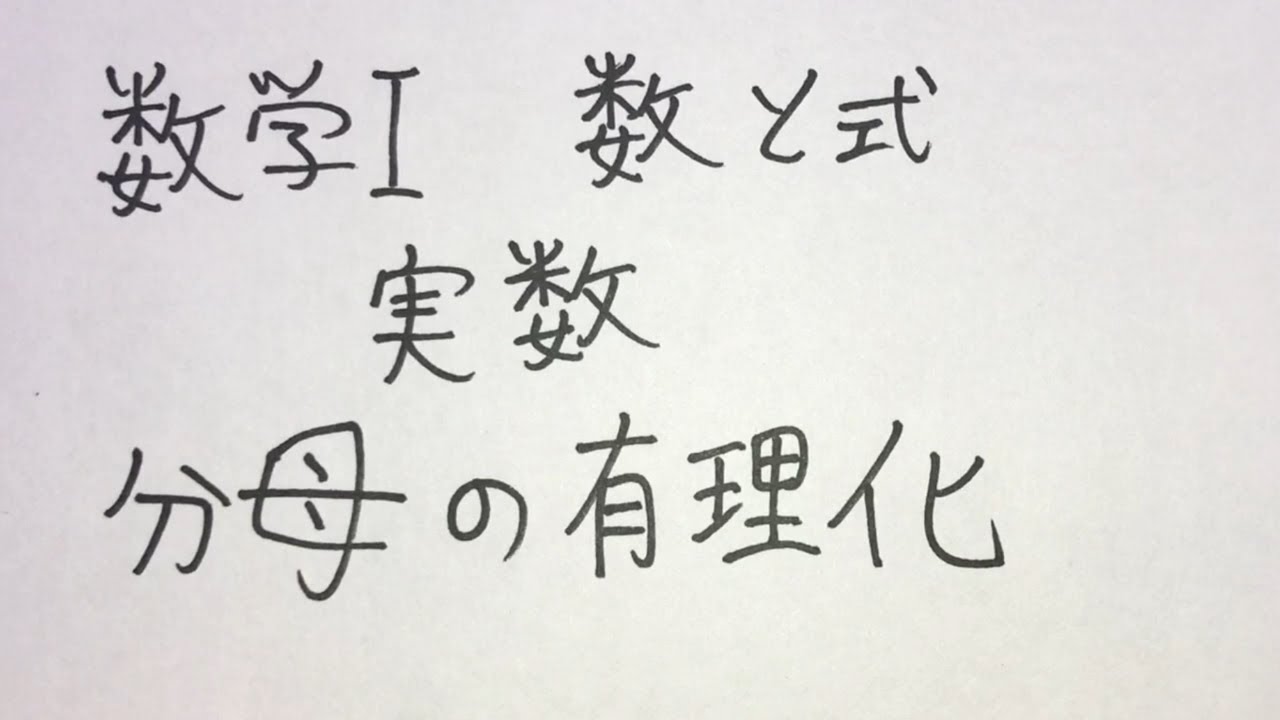 数学I 数と式
実数
分母の有理化